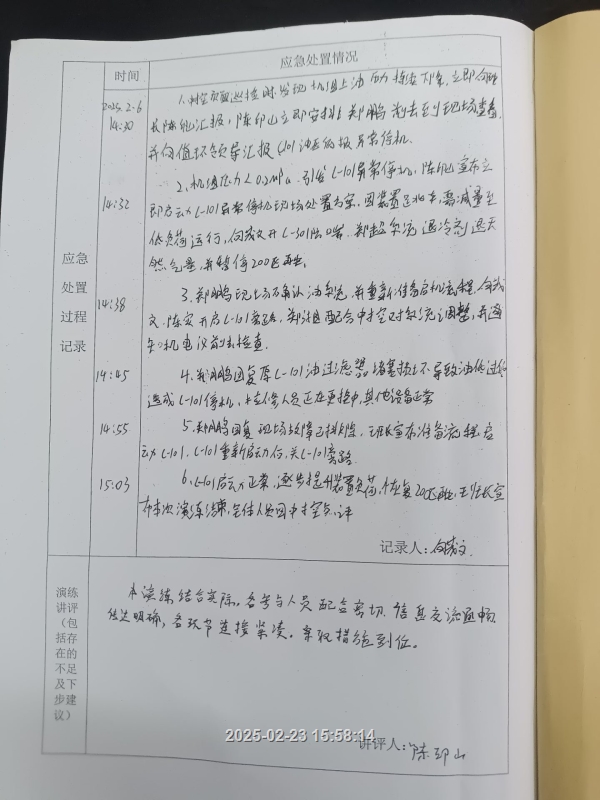 应急处置情况
时间
应急处置过程记录
2025.2.6
14:30
1. 巡检时发现机组上油压力持续下降,立即向班
长陈印山汇报,陈印山立即安排郑鹏前去到现场查看,
并向值班领导汇报C101油压低报异常停机。
14:32
2. 机组压力<0.2MPa,引发C-101异常停机,陈印山宣布立
即启动C-101异常停机现场处置方案,因装置是北东需减量至
低负荷运行,向成文开C-301防喘,郑超负责退冷剂退天
然气量,并暂停200#再生。
14:38
3. 郑鹏现场确认油泵,并重新准备启机流程,向成
文、陈实开启C-101旁路,郑湘配合中控对系统调整,并通
知机电仪前去检查。
14:45
4. 郑鹏回复原C-101油过滤器堵塞报不导致油低过低
造成C-101停机,检修人员正在更换中,其他设备正常
14:55
5. 郑鹏回复现场故障已排除,班长宣布准备流程启
动C-101,C-101重新启动后,关C-101旁路
15:03
6. C-101启动正常,逐步提升装置负荷,恢复200#再生,班长宣
布本次演练结束,全体人员回中控室点评
记录人:向成文
演练讲评(包括存在的不足及下步建议)
本演练结合实际,各参与人员配合密切、信息交流通畅
传达明确,各环节连接紧凑。采取措施到位。
2025-02-23 15:58:14
讲评人:陈印山